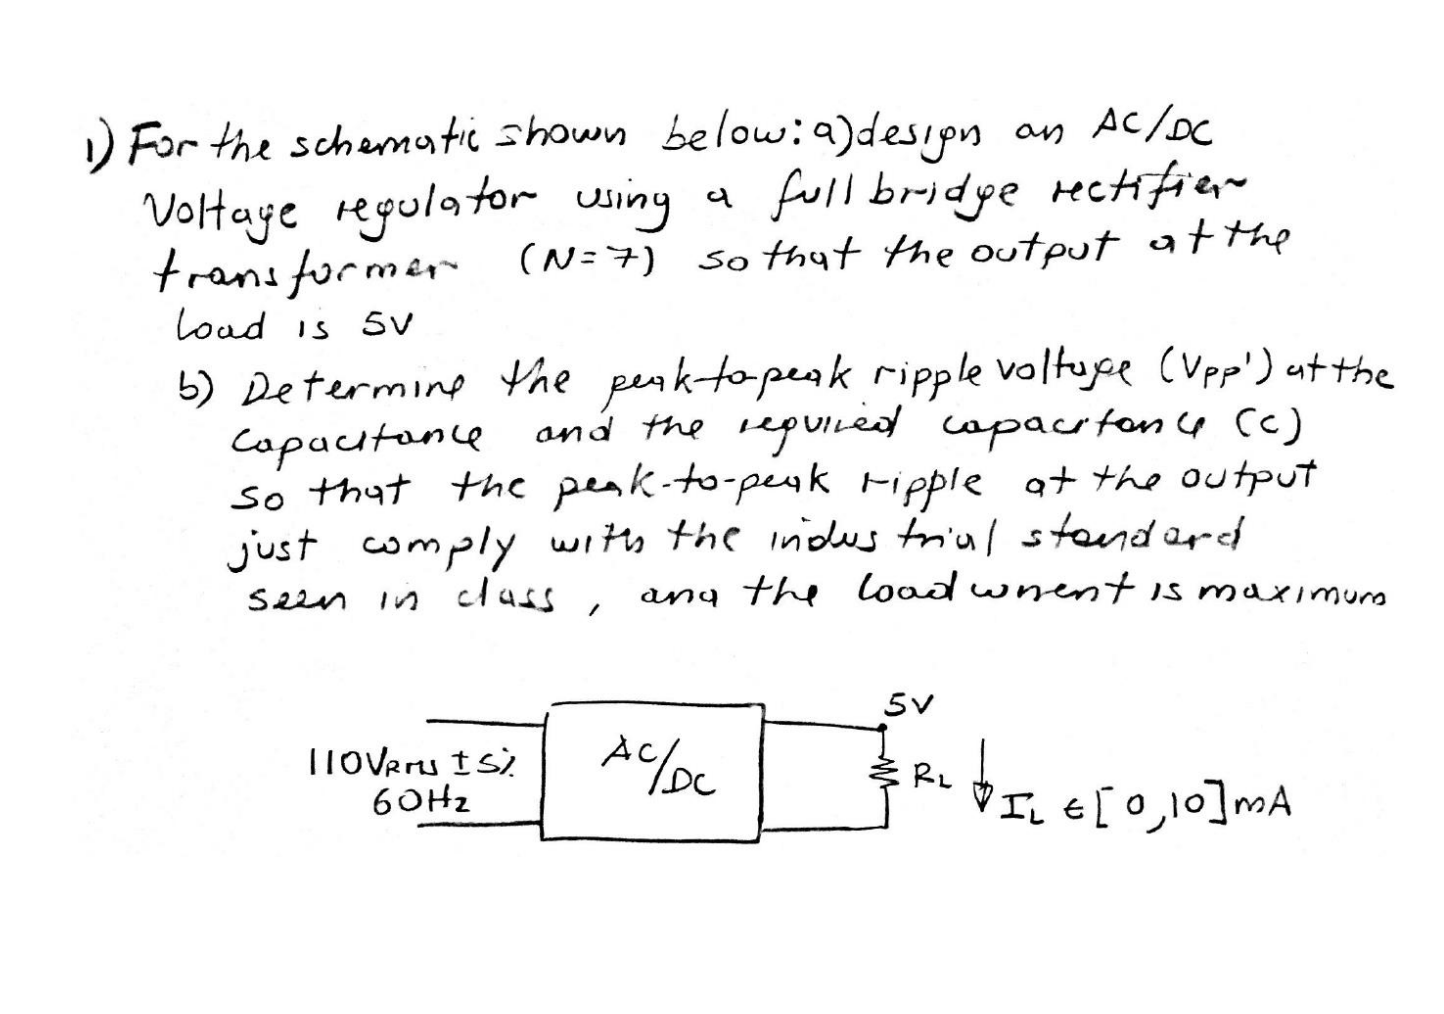 1) For the schematic shown below: a) design an AC/DC
Voltage regulator using a full bridge rectifier
transformer (N=7) so that the output at the
load is 5V
b) Determine the peak-to-peak ripple voltage (Vpp') at the
capacitance and the required capacitance (c)
so that the peak-to-peak ripple at the output
just comply with the industrial standard
seen in class, and the load current is maximum
5V
110VRMS ±5%
60Hz
AC/DC
RL
IL ∈ [0,10] mA